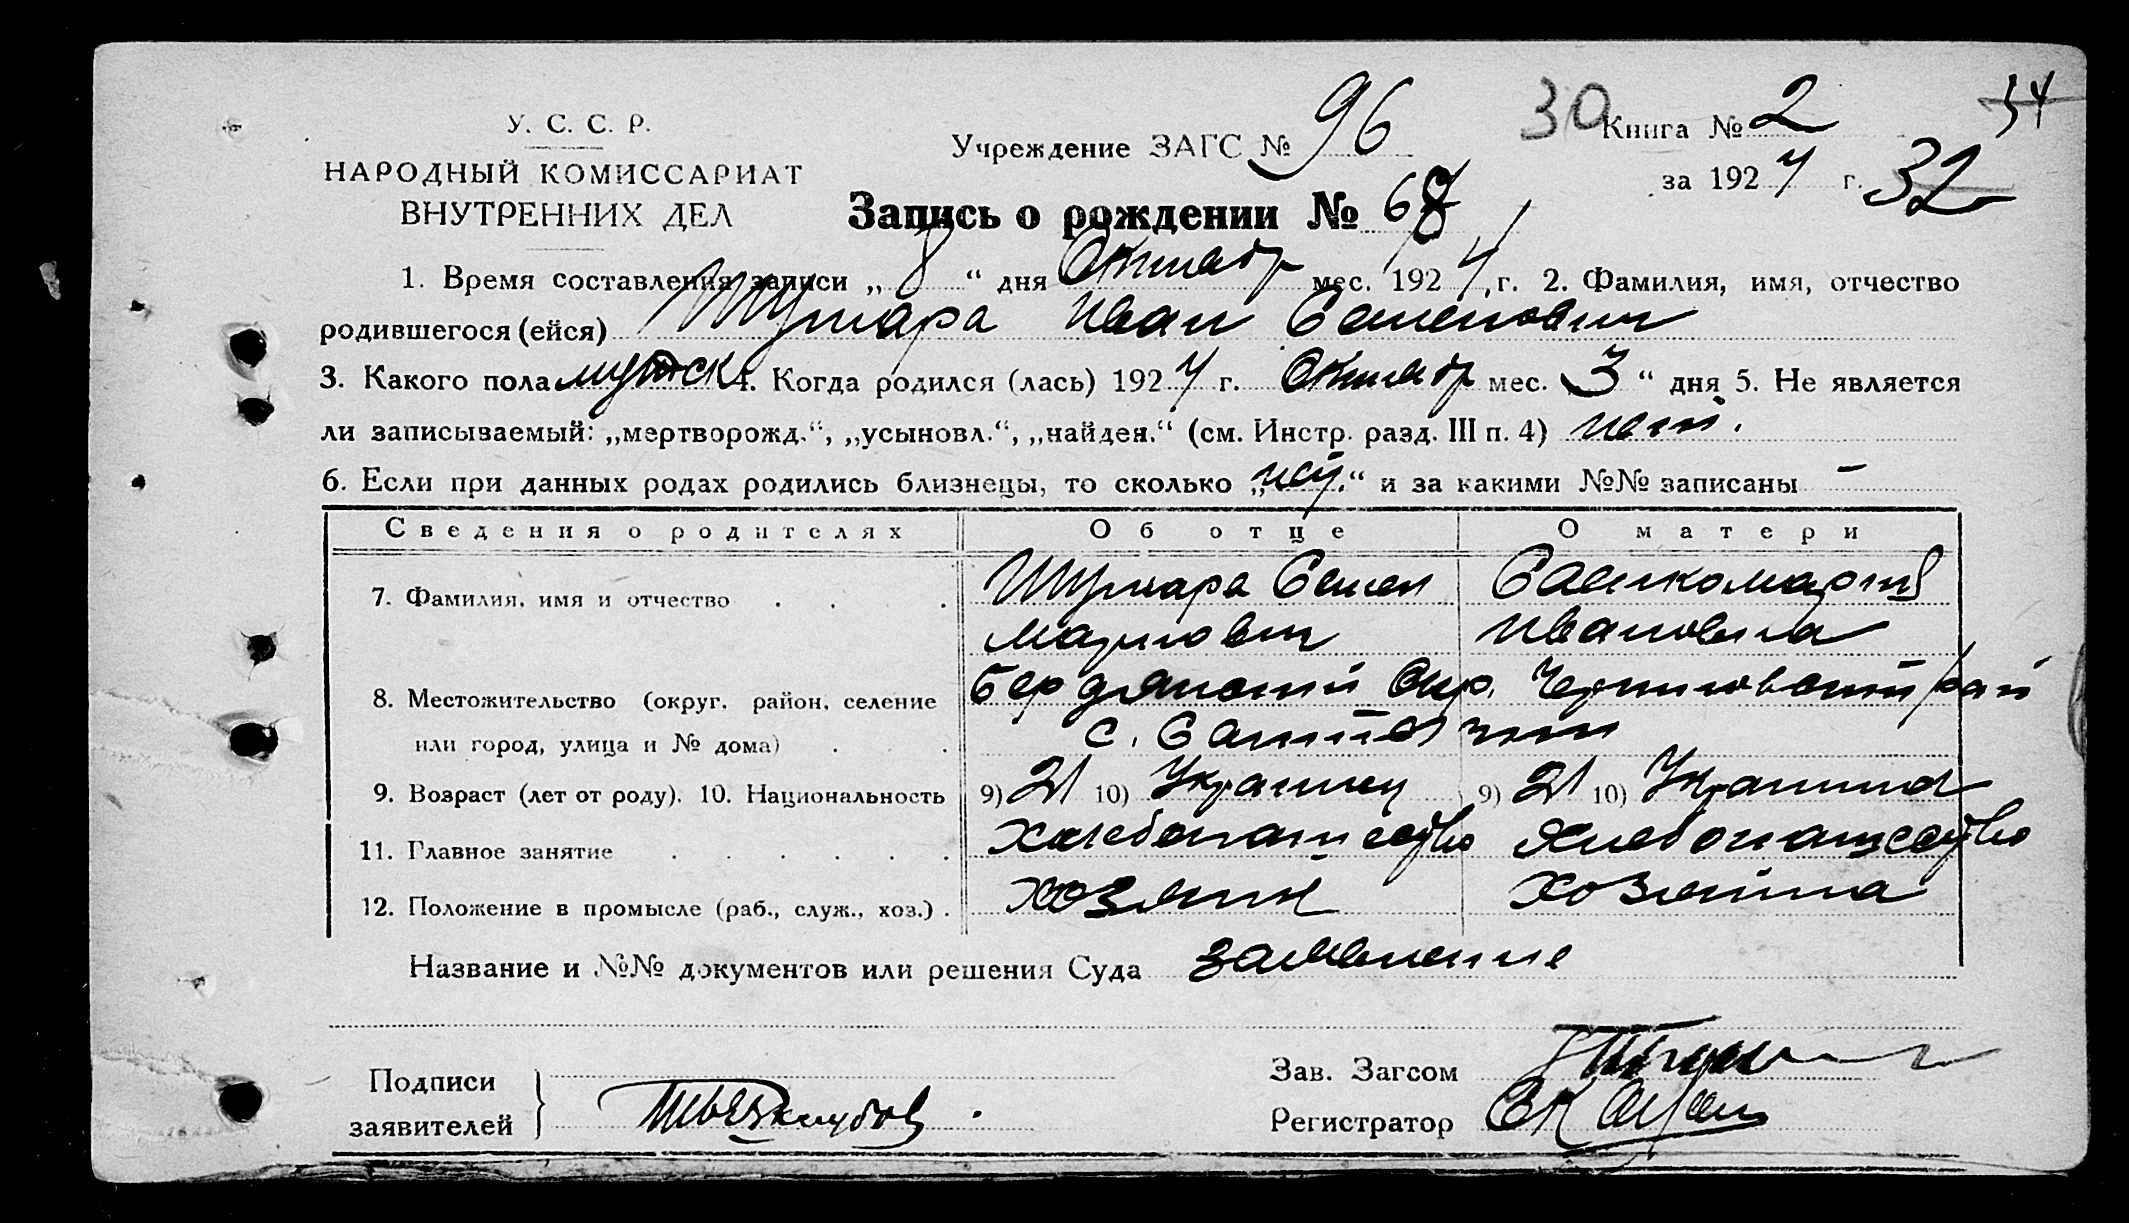 У. С. С. Р.
НАРОДНЫЙ КОМИССАРИАТ
ВНУТРЕННИХ ДЕЛ
Учреждение ЗАГС № 96
30 Книга № 2 34
за 1927 г. 32
Запись о рождении № 68
1. Время составления записи „ 8 “ дня Октябр мес. 1927 г. 2. Фамилия, имя, отчество
родившегося (ейся) Иван Семенович
3. Какого пола мужск 4. Когда родился (лась) 1927 г. Октябр мес. 3 “ дня 5. Не является
ли записываемый: „мертворожд.“, „усыновл.“, „найден.“ (см. Инстр. разд. III п. 4) нет.
6. Если при данных родах родились близнецы, то сколько „нет.“ и за какими №№ записаны –
Сведения о родителях Об отце О матери
7. Фамилия, имя и отчество . . . Семен
Ивановна
8. Местожительство (округ, район, селение Бердянский Окр. Черниговский рай
или город, улица и № дома) . . . с.
9. Возраст (лет от роду). 10. Национальность 9) 21 10) Украинец 9) 21 10) Украинка
11. Главное занятие . . . . . . Хлебопашество Хлебопашество
12. Положение в промысле (раб., служ., хоз.) . Хозяин Хозяйка
Название и №№ документов или решения Суда заявление
Подписи
заявителей
Зав. Загсом
Регистратор